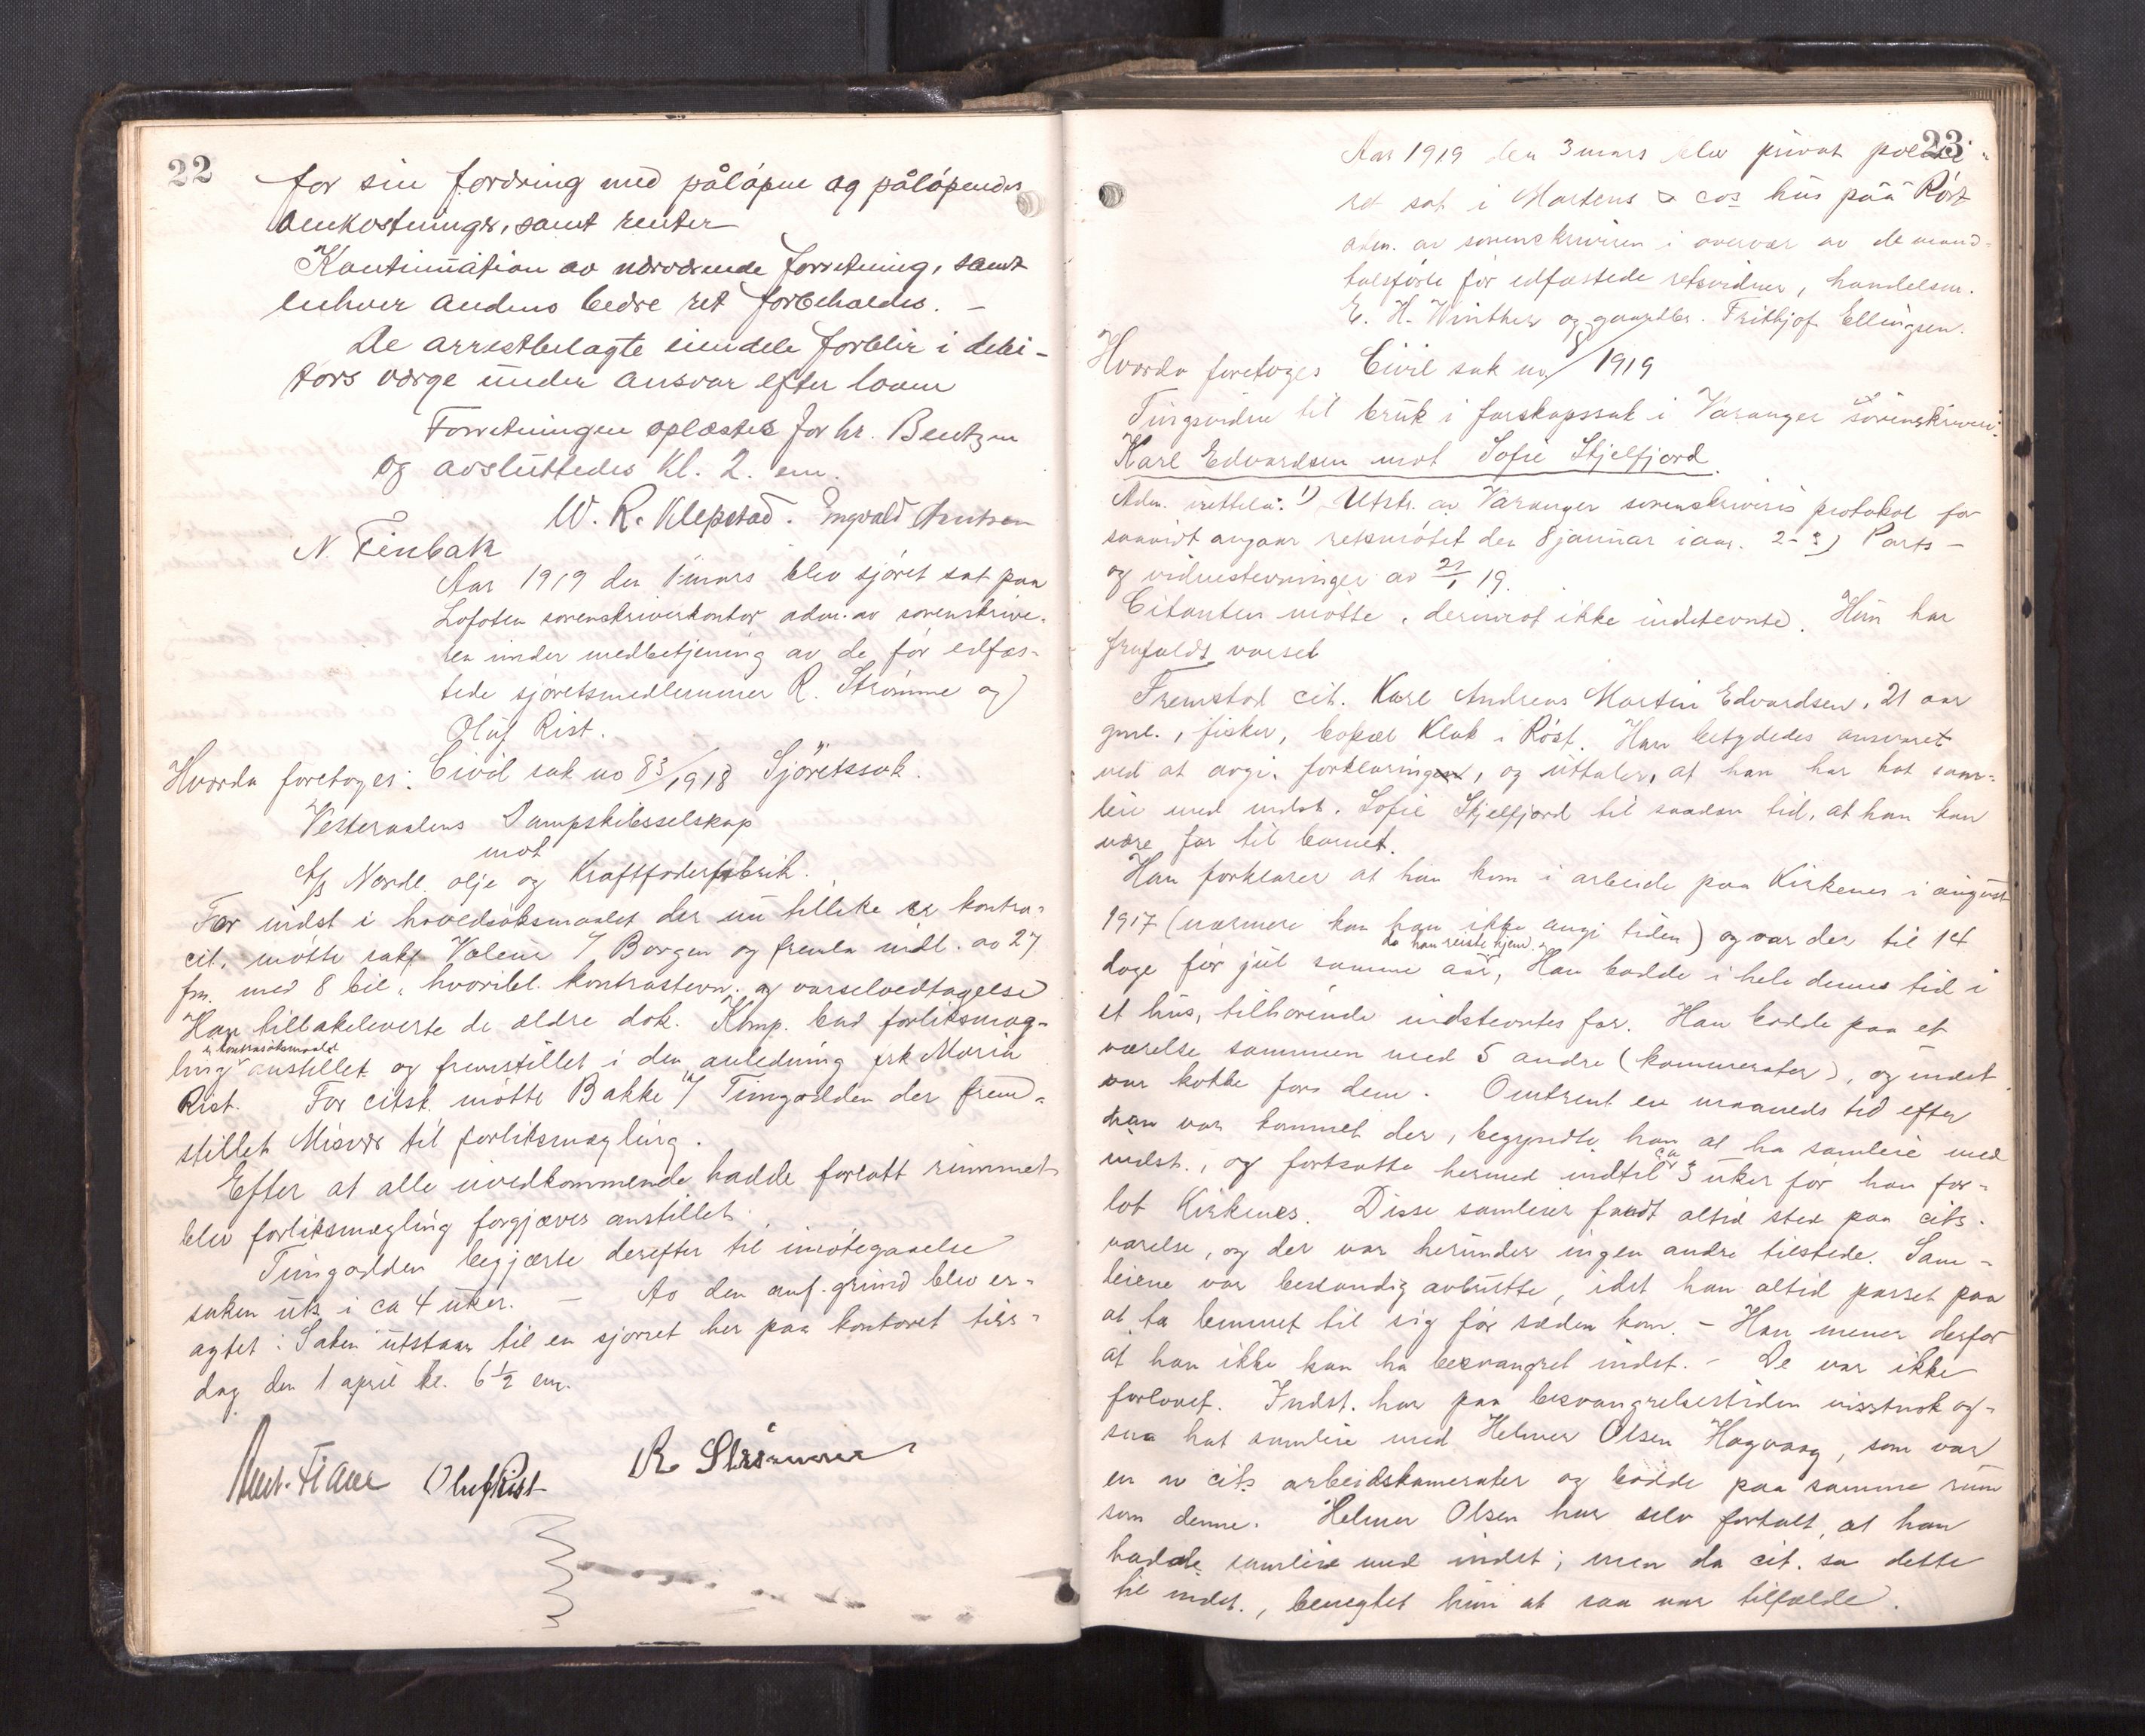 22
for sin fordring med påløpne og påløpende
omkostninger, samt renter
Kontinuation av nærværende forretning, samt
enhver andens bedre ret forbeholdes. –
De arrestbelagte eiendele forblir i debi-
tors værge under ansvar efter loven
Forretningen oplæstes for hr. Bentzen
og avsluttedes kl. 2. em.
W. R. Klepstad. Ingvald Arntsen
N. Finbak
Aar 1919 den 1 mars blev sjøret sat paa
Lofoten sorenskriverkontor adm. av sorenskrive-
ren under medbetjening av de før edfæs-
tede sjøretsmedlemmer R. Strømme og
Oluf Rist.
Hvorda foretoges: Civil sak no 83/1918 Sjøretssak.
Vesteraalens Dampskibsselskap
mot
A/S Nordl. olje og Kraftfoderfabrik.
For indst i hovedsøksmaalet der nu tillike er kontra-
cit. møtte sakf. Valeur f/ Borgen og fremla indl. av 27
fm. med 8 bil., hvoribl. kontrastevn. og varselvedtagelse
Han tilbakeleverte de ældre dok. Komp. bad forliksmæg-
i kontrasøksmaalet
ling anstillet og fremstillet i den anledning frk Maria
Rist. For citsk. møtte Bakke f/ Timgodden der frem-
stillet Misvær til forliksmægling.
Efter at alle uvedkommende hadde forlatt rummet
blev forliksmægling forgjæves anstillet.
Timgodden begjærte derefter til imøtegaaelse
saken uts i ca 4 uker. – Av den anf. grund blev er-
agtet: Saken utstaar til en sjøret her paa kontoret tirs-
dag den 1 april kl. 6 1/2 em.
Oluf Rist R Strømme
23
Aar 1919 den 3 mars blev privat politi-
ret sat i Martens & cos hus paa Røst
adm. av sorenskriveren i overvær av de mand-
talsførte før edfæstede retsvidner, handelsm.
E. H. Winther og gaardbr. Frithjof Ellingsen.
Hvorda foretoges Civil sak no 8/1919
Tingsvidne til bruk i farskapssak i Varanger sorenskriveri:
Karl Edvardsen mot Sofie Skjelfjord.
Adm. rettela: 1) Utskr. av Varanger sorenskriveris protokol for
saavidt angaar retsmøtet den 8 januar iaar. 2-3) Parts-
og vidnestevninger av 21/1 19.
Citanten møtte, derimot ikke indstevnte. Hun har
forfalds varsel
Fremstod cit. Karl Andreas Martin Edvardsen, 21 aar
gml., fisker, bopæl Klak i Røst. Han betydedes ansvaret
ved at avgi forklaringen, og uttaler, at han har hat sam-
leie med indst. Sofie Skjelfjord til saadan tid, at han kan
være far til barnet.
Han forklarer at han kom i arbeide paa Kirkenes i august
1917 (nærmere kan han ikke angi tiden) og var der til 14
da han reiste hjem.
dage før jul samme aar, Han bodde i hele denne tid i
et hus, tilhørende indstevntes far. Han bodde paa et
værelse sammen med 5 andre (kammerater), og indst.
var kokke fors dem. Omtrent en maaneds tid efter
han var kommet der, begyndte han at ha samleie med
indst., og fortsatte hermed indtil ca 3 uker før han for-
lot Kirkenes. Disse samleier fandt altid sted paa cits.
værelse, og der var herunder ingen andre tilstede. Sam-
leiene var bestandig avbrutte, idet han altid passet paa
at ta lemmet til sig før sæden kom. – Han mener derfor
at han ikke kan ha besvangret indst. – De var ikke
forlovet. Indst. har paa besvangrelsestiden visstnok og-
saa hat samleie med Helmer Olsen Hagvaag, som var
en av cits arbeidskamerater og bodde paa samme rum
som denne. Helmer Olsen har selv fortalt, at han
hadde samleie med indst; men da cit. sa dette
til indst., benegtet hun at saa var tilfælde.